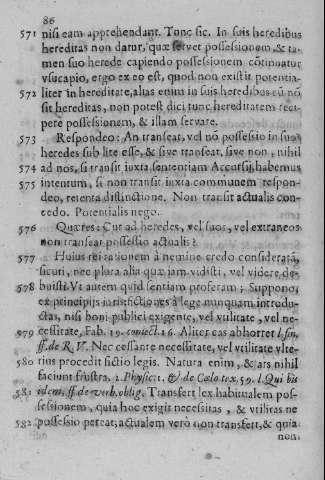 86
571 nisi eam apprehendant. Tunc sic. In suis heredibus
hereditas non datur, quæ servet possessionem, & ta-
men suo herede capiendo possessionem cõtinuatur
vsucapio, ergo ex eo est, quod non existit potentia-
572 liter in hereditate, alias enim in suis heredibus cũ nõ
sit hereditas, non potest dici, tunc hereditatem reti-
nere possessionem, & illam servare.
573 Respondeo: An transeat, vel nõ possessio in suos
heredes sub lite esse, & sive transeat, sive non, nihil
574 ad nos, si transit iuxta sententiam Accursij, habemus
575 intentum, si non transit iuxta communem respon-
deo, retenta distinctione. Non transit actualis con-
cedo. Potentialis nego.
576 Quæres: Cur ad heredes, vel suos, vel extraneos
non transeat possessio actualis?
577 Huius rei rationem à nemine credo considerata,
sicuri, nec plura alia quæ jam vidisti, vel videre de-
578 buisti. Vt autem quid sentiam proferam; Suppono,
ex principijs iurisdictiones à lege nunquam introdu-
ctas, nisi boni publici exigente, vel vtilitate, vel ne-
979 cessitate, Fab. 19. coniect. 16. Aliter eas abhorret l. sin,
ff. de R. V. Nec cessante necessitate, vel vtilitate vlte-
580 rius procedit fictio legis. Natura enim, & ars nihil
faciunt frustra. 2. Physic. t. & de Cœlo tex. 59. l. Qui bis
581 idem, ff. de verb. oblig. Transfert lex habitualem pos-
sessionem, quia hoc exigit necessitas, & vtilitas ne
582 possessio pereat; actualem verò non transfert, & quia
non